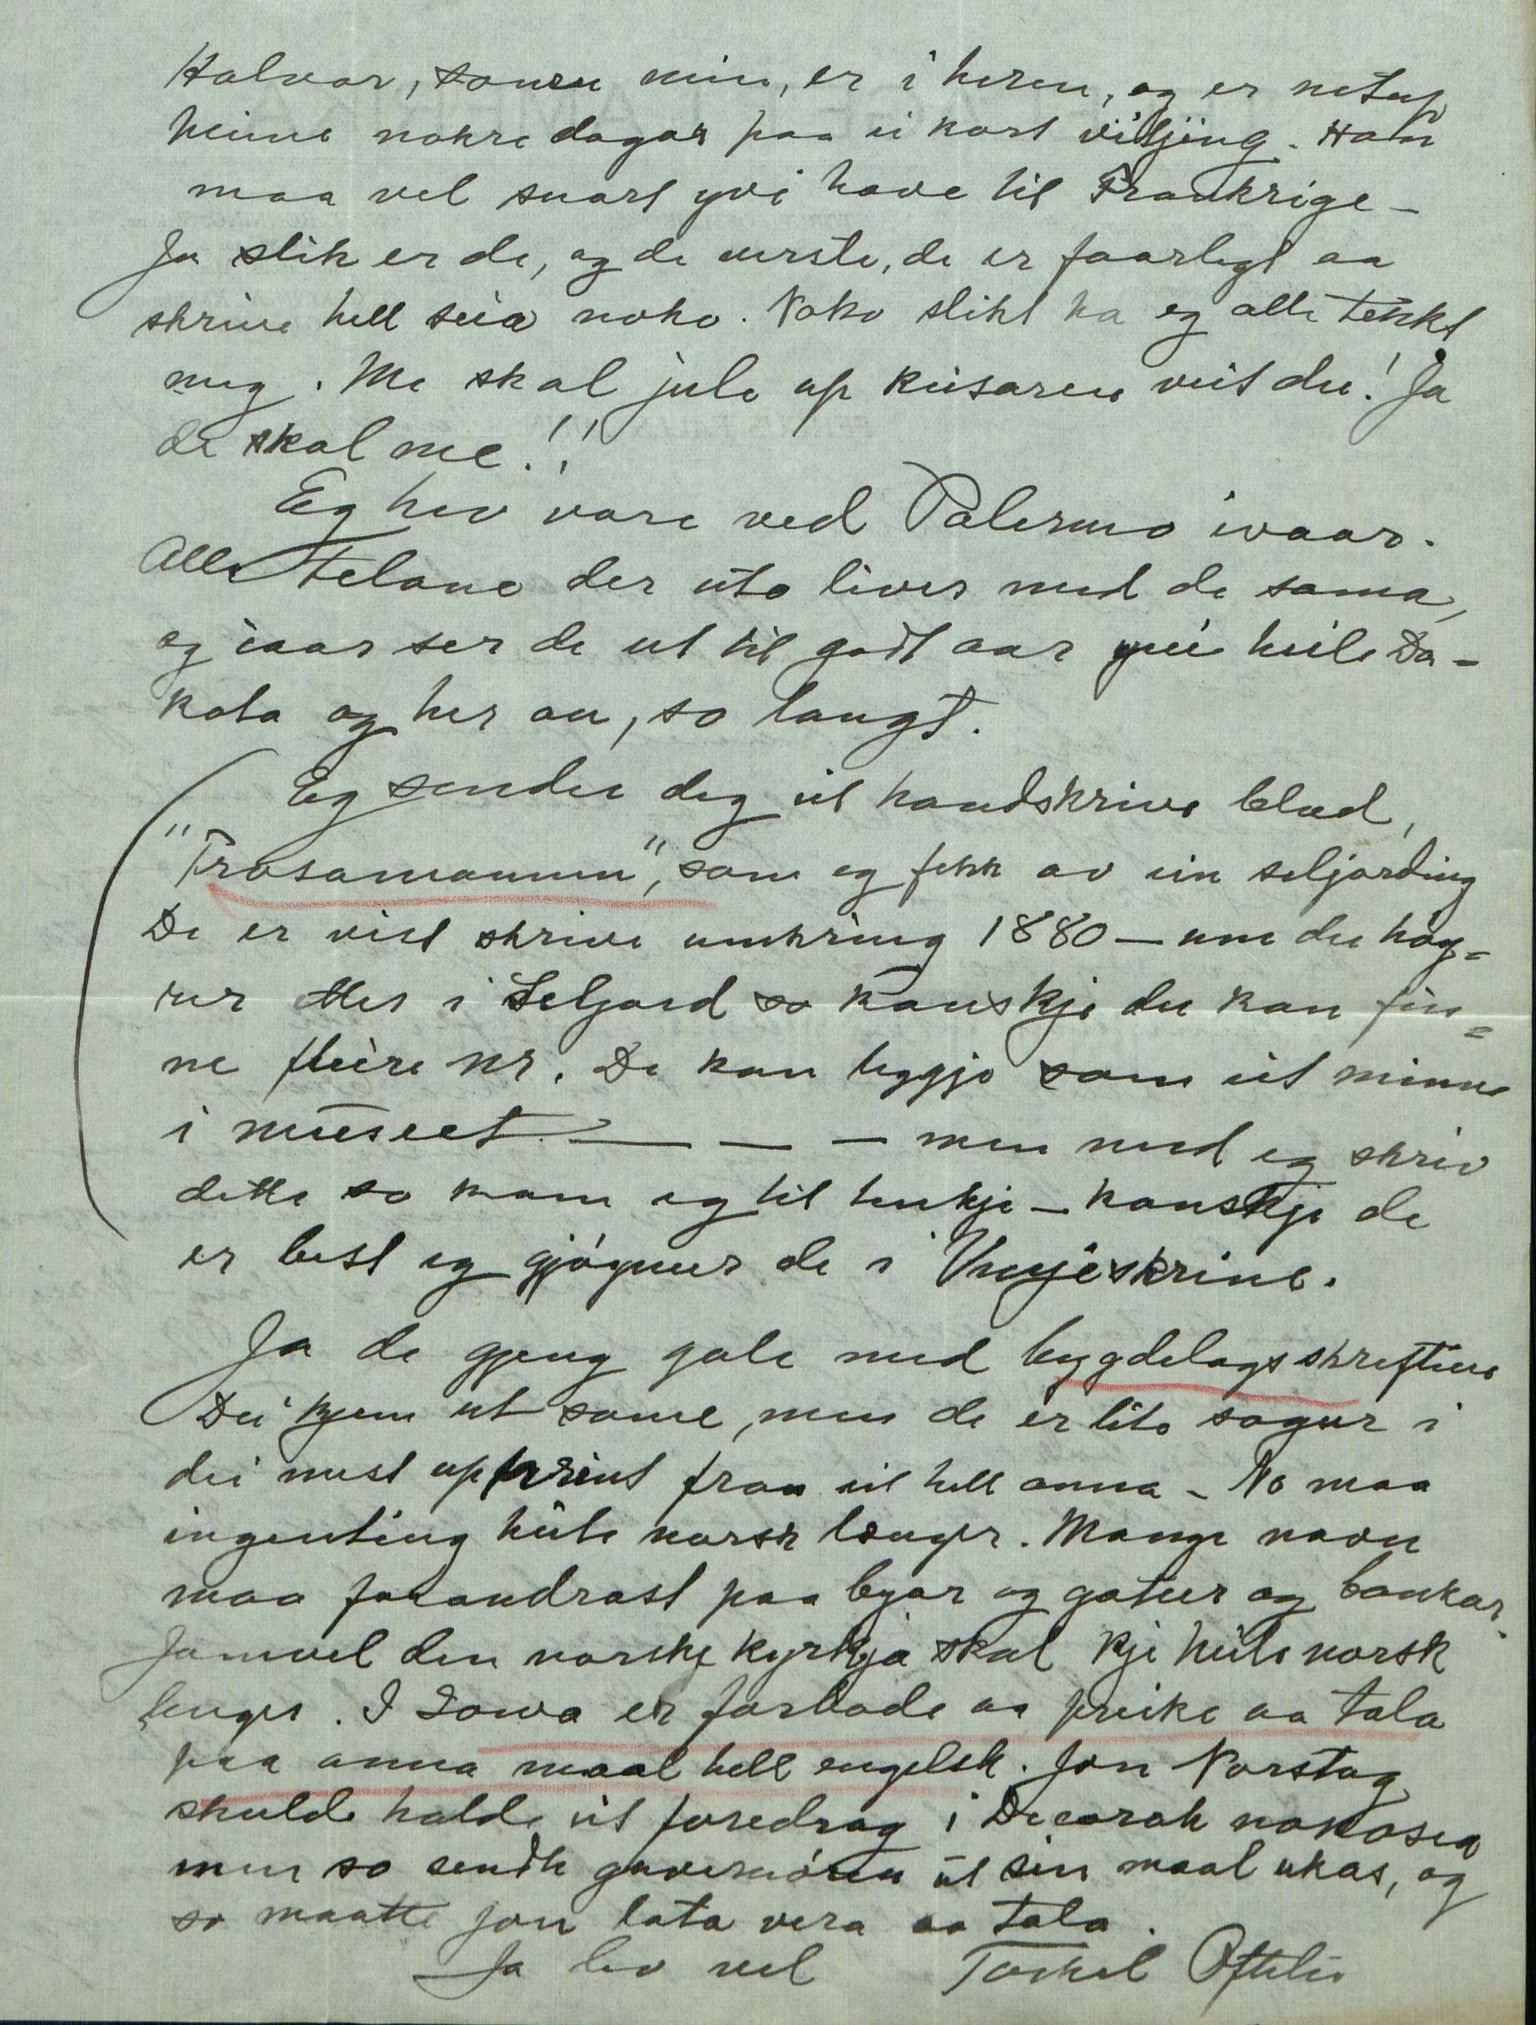 Halvor, sonen min, er i heren, og er netup
heime nokre dagar paa ei kort vitjing. Han
maa vel snart yvi have til Frankrige –
Ja slik er de, og de verste, de er faarlegt aa
skrive hell seia noko. Noko slikt ha eg alli tenkt
meg. Me skal jule up keisaren veit du! Ja
de skal me!!
Eg hev vore ved Palermo ivaar.
Alle telane der uto liver med de sama,
og iaar ser de ut til godt aar yvi heile Da-
kota og her au, so langt.
Eg sender deg eit handskrive blad,
"Trosamannen", som eg fekk av ein seljording
De er vist skrive umkring 1880 – um du hoy=
rer etter i Seljord so kanskje du kan fin=
ne fleire nr. De kan leggje som eit minne
i museet. — — — men med eg skriv
dette so kom eg til tenkje – kanskje de
er best eg gjøymer de i Vinjeskrine.
Ja de gjeng gale med bygdelagsskriftine
Dei kjem ut some, men de er lite sogur i
dei mest upprint fraa eit hell anna – No maa
ingenting heite norsk lenger. Mange navn
maa forandrast paa byar og gatur og bankar.
Jamvel den norske kyrkja skal kje heite norsk
lenger. I Iowa er forbode aa preike aa tala
paa anna maal hell engelsk. Jon Norstog
skulde halde eit foredrag i Decorah nokosea
men so sendte guvernóren ut sin maal ukas, og
so maatte Jon lata vera aa tala.
Ja lev vel Torkel Oftelie